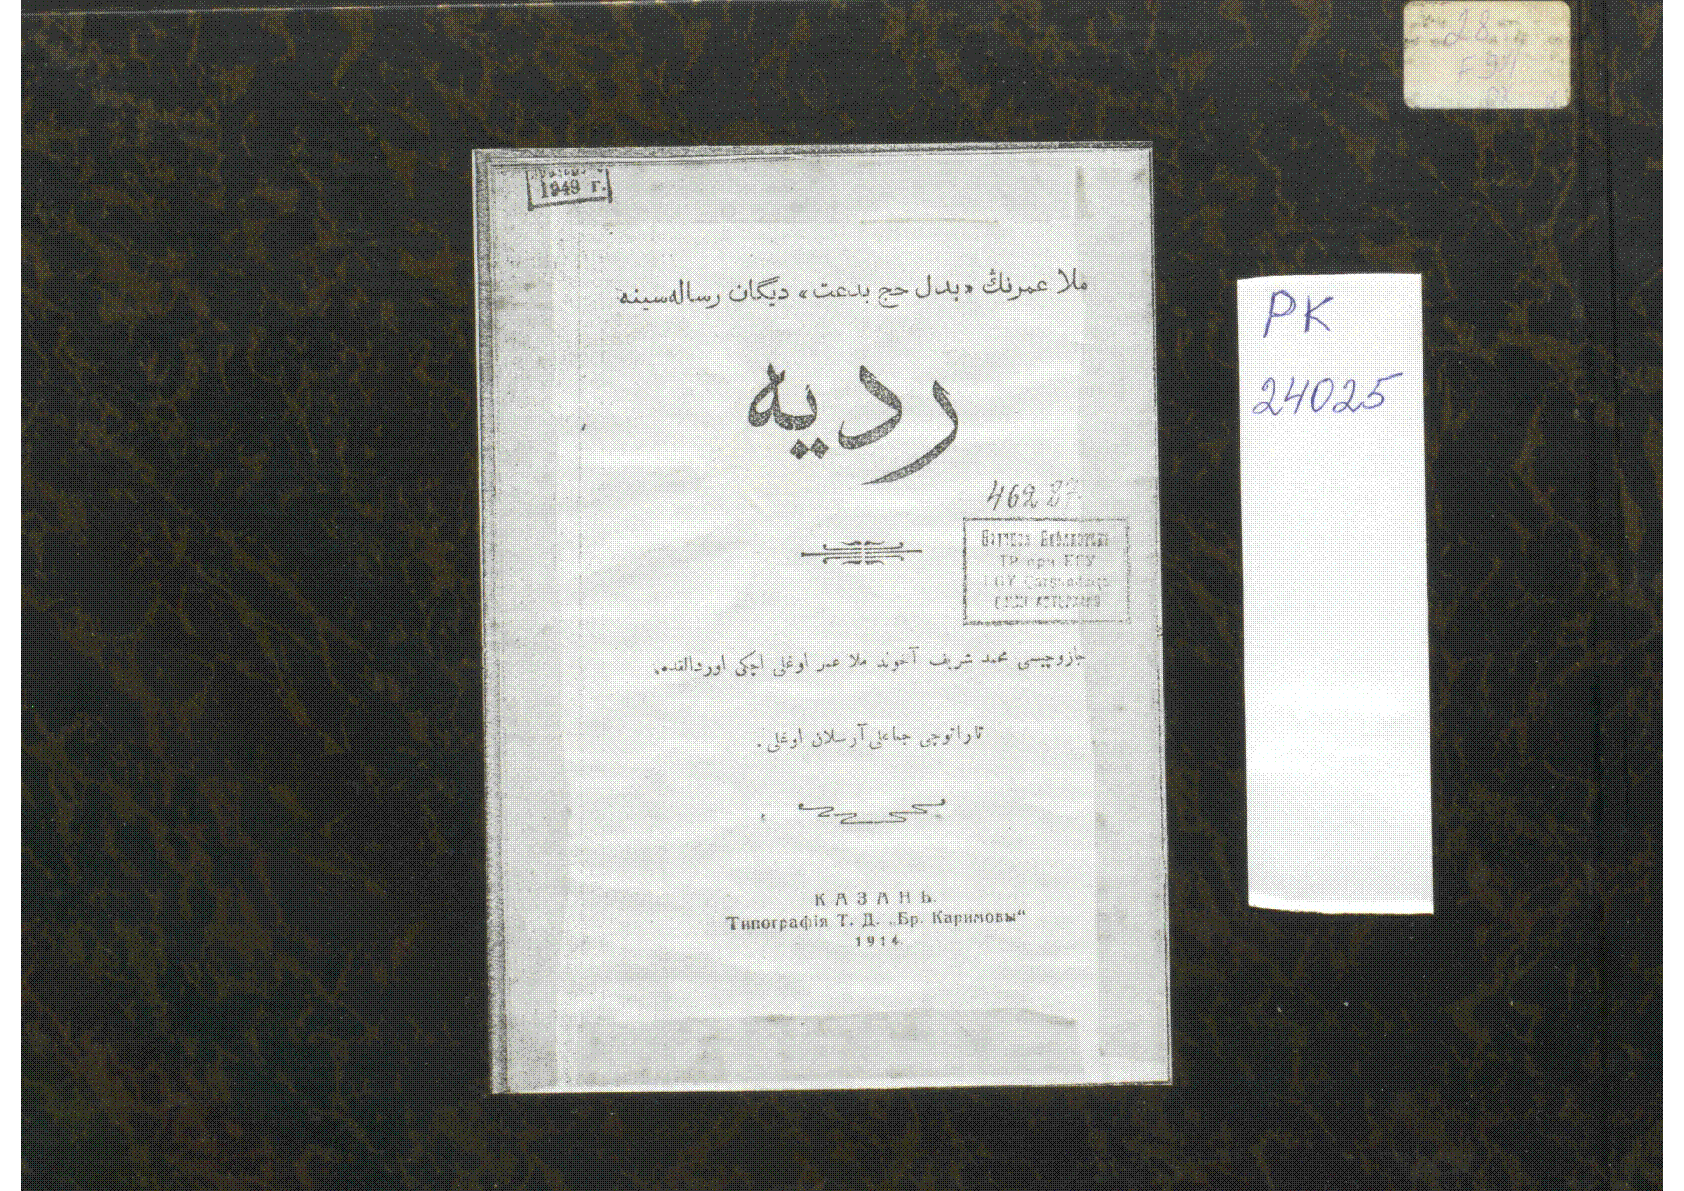 1949 г.
ملا عمرنڭ «بدل حج بدعت» ديگان رساله‌سينه
رديه
46287
ТР при КГУ
جازوچيسى محمد شريف آخوند ملا عمر اوغلى اچكى اوردالقده.
تاراتوچى جماعلى آرسلان اوغلى.
КАЗАНЬ.
Типографія Т. Д. „Бр. Каримовы“
1914
РК
24025
28